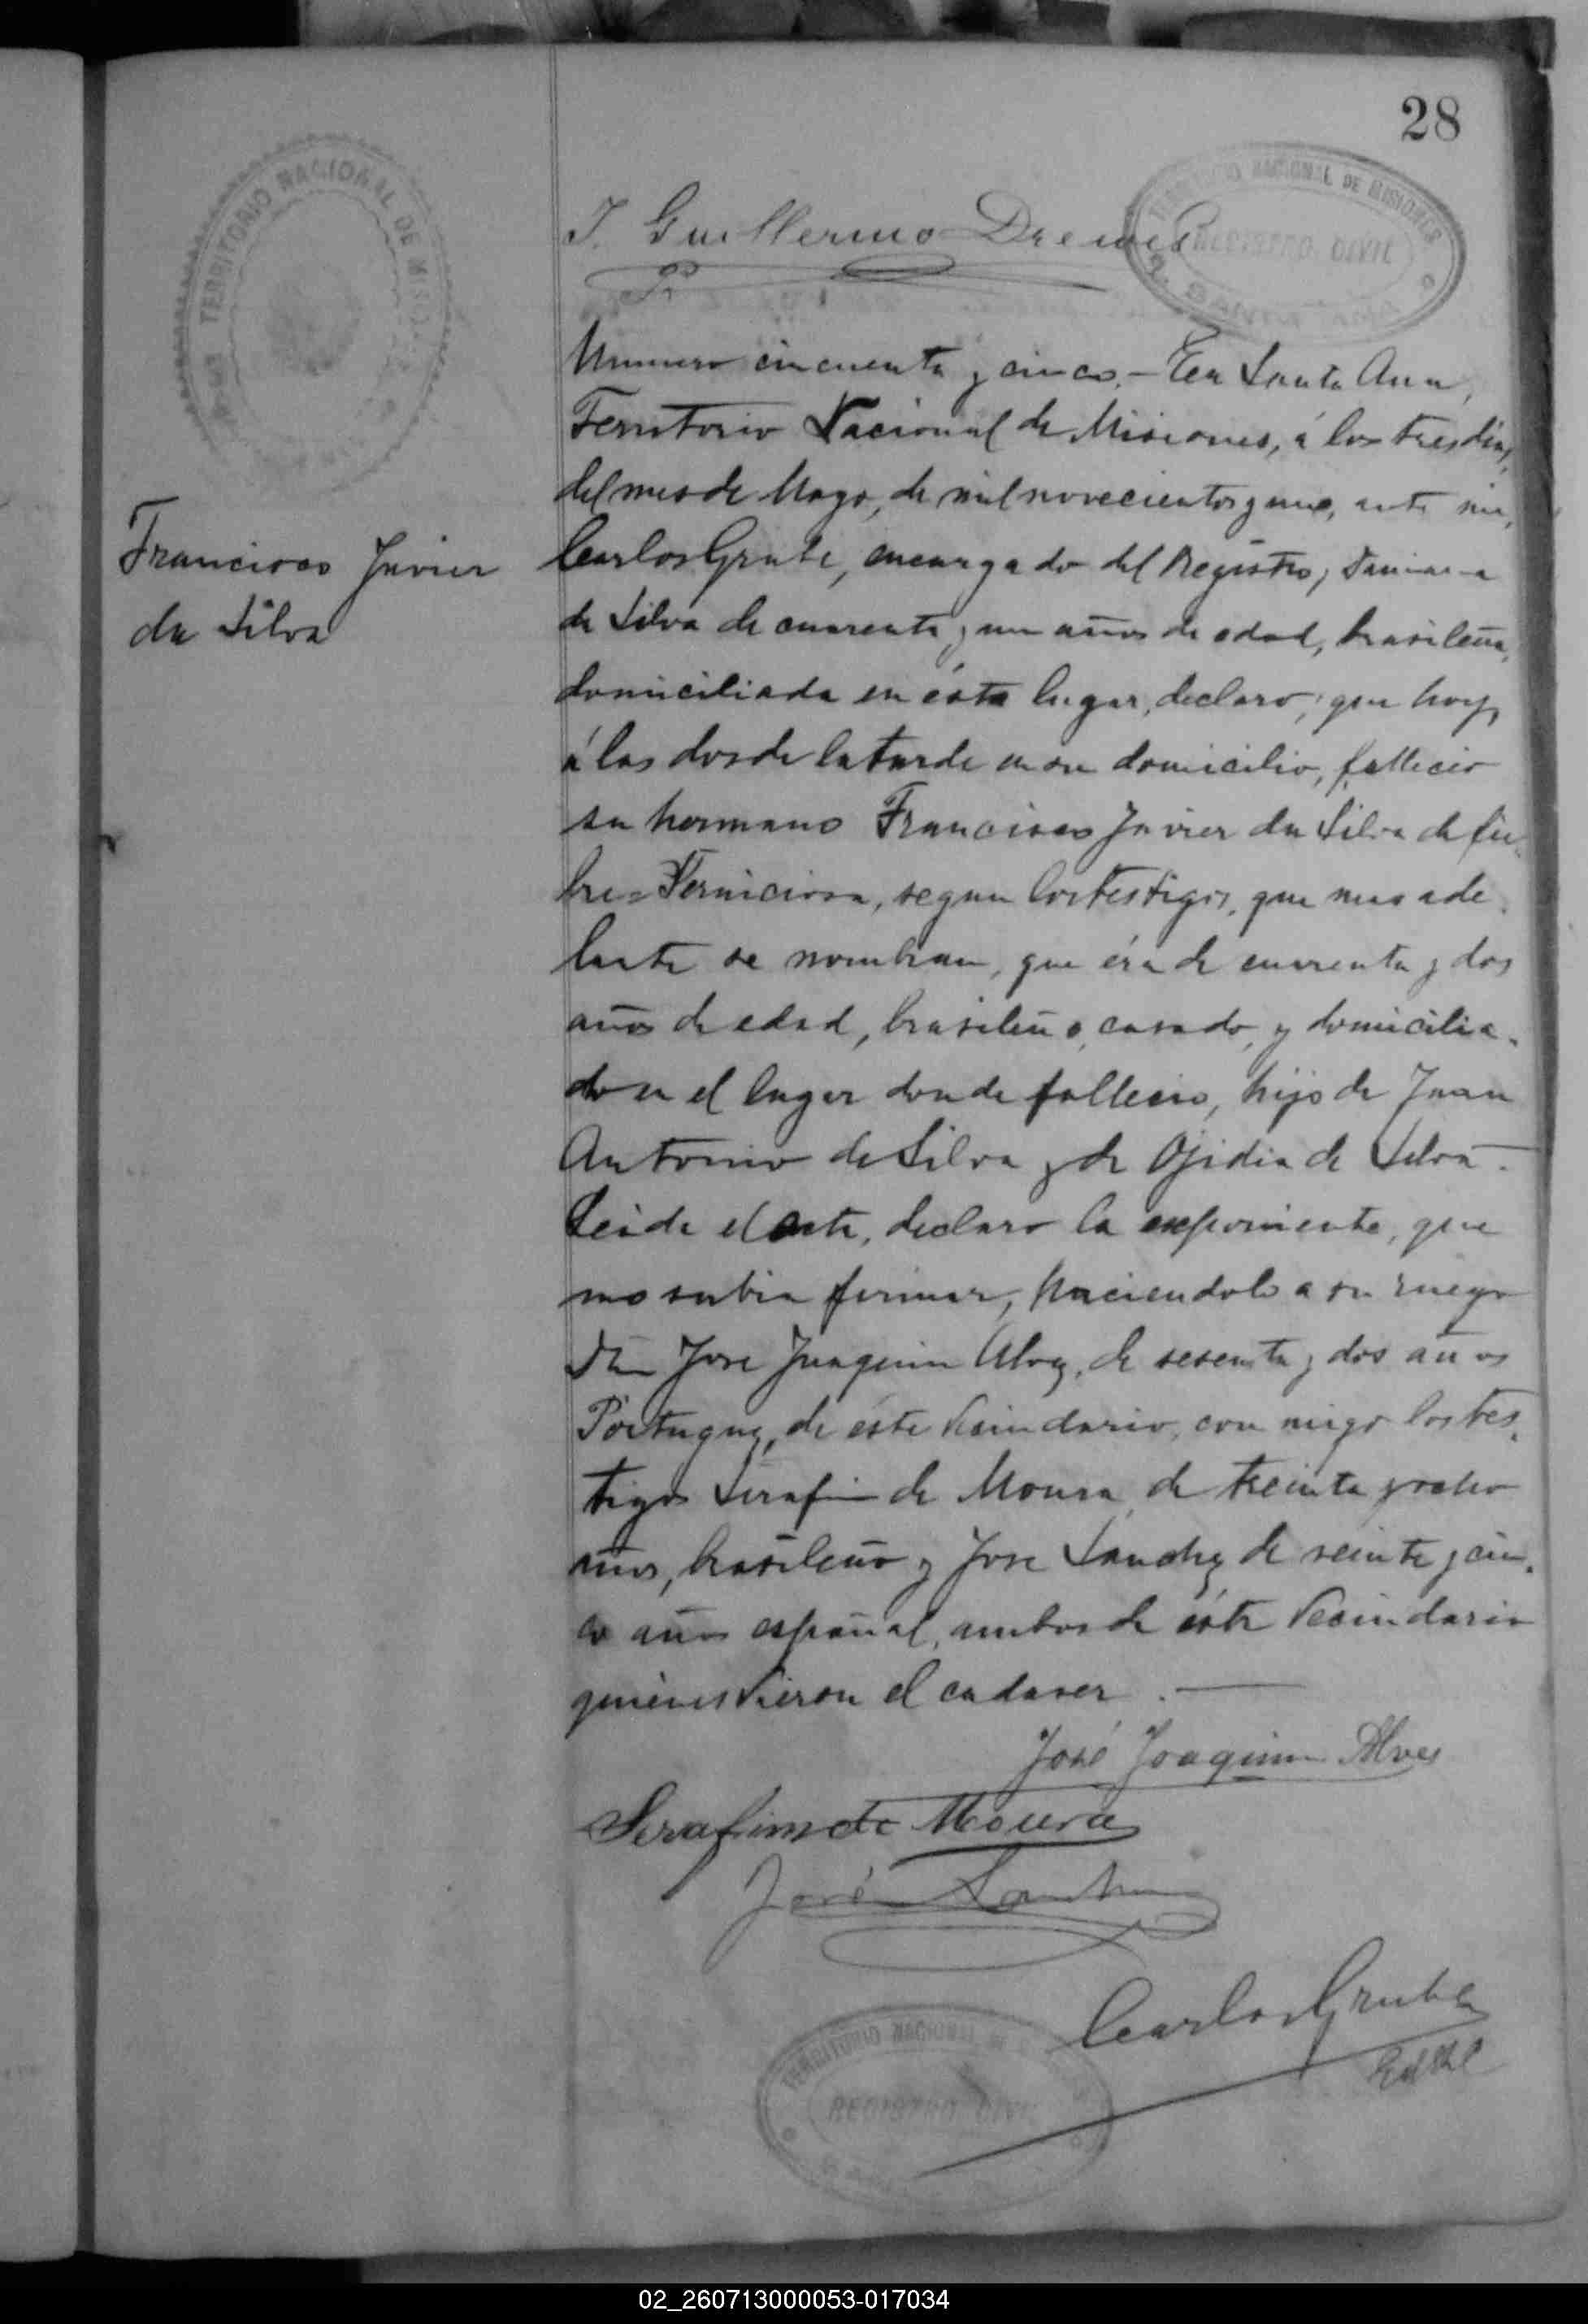 28
TERRITORIO NACIONAL DE MISIONES
TERRITORIO NACIONAL DE MISIONES
REGISTRO CIVIL
SANTA ANA
J. Guillermo Drewes
Numero cincuenta y cinco.- En Santa Ana,
Territorio Nacional de Misiones, á los tres dias,
del mes de Mayo, de mil novecientos y uno, ante mi,
Carlos Grube, encargado del Registro,
de Silva de cuarenta y un años de edad, brasileña,
domiciliada en ésta lugar, declaro; que hoy,
á las dos de la tarde en su domicilio, fallecio
su hermano Francisco Javier da Silva de fie-
bre=Perniciosa, segun los testigos, que mas ade-
lante se nombran, que éra de cuarenta y dos
años de edad, brasileño, casado, y domicilia-
do en el lugar donde fallecio, hijo de Juan
Antonio de Silva y de Ojidia de Silva.
Leida el acta, declaro la exponiente, que
no sabia firmar, haciendolo a su ruego
Dn Jose Juaquin Alvez, de sesenta y dos años
Portuguez, de éste Vecindario, con migo los tes-
tigos Serafin de Moura de treinta y ocho
años, brasileño y Jose Sanchez de veinte y cin-
co años español, ambos de éste Vecindario
quiénes vieron el cadaver.
Francisco Javier
da Silva
José Joaquim Alves
Serafim de Moura
José Sanchez
Carlos Grube
TERRITORIO NACIONAL
REGISTRO CIVIL
02_260713000053-017034